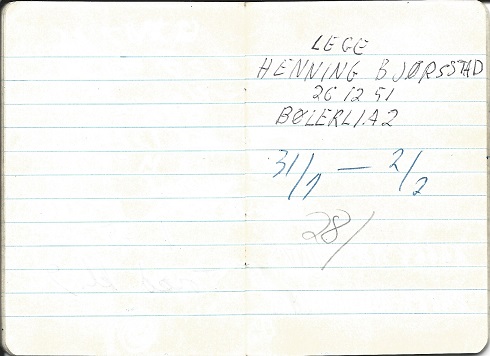 LEGE
HENNING BJØRSSTAD
26 12 51
BØLERLIA 2
31/1 — 2/2
28/